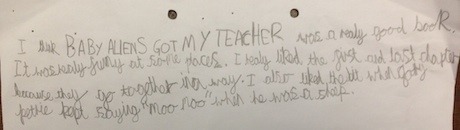 I think BABY ALIENS GOT MY TEACHER was a realy good book.
It was realy funny at some places. I realy liked the first and last chapter
because they go together in a way. I also liked the bit when
kept saying "moo moo" when he was a sheep.